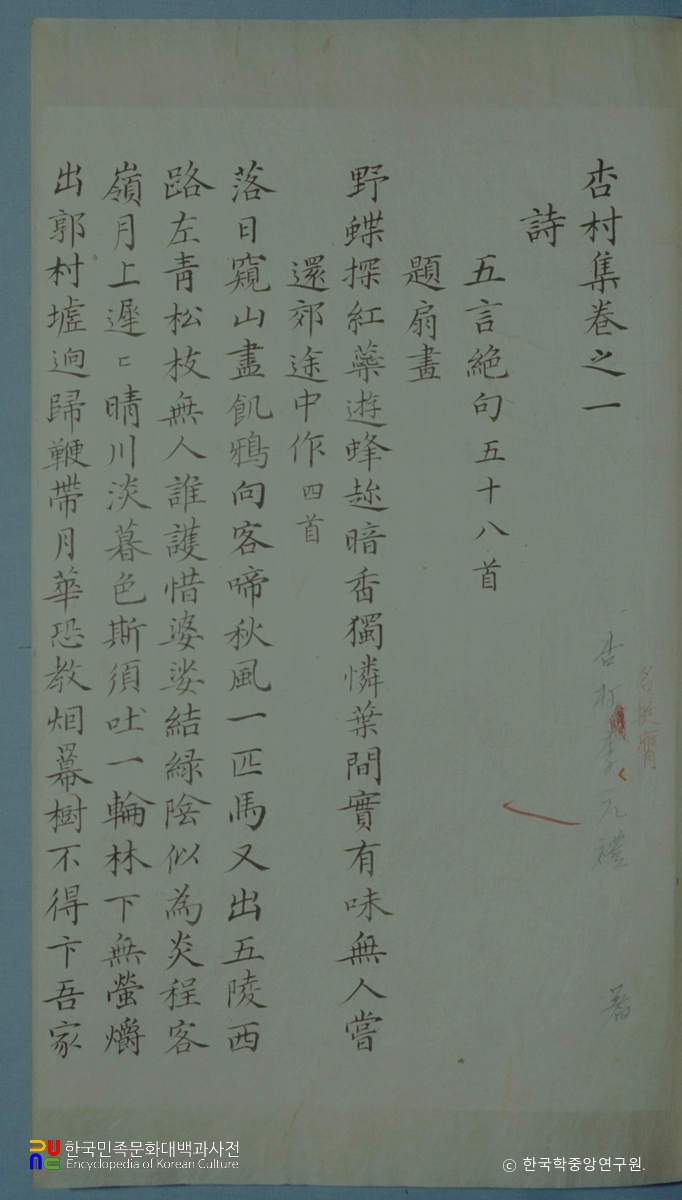 杏村集卷之一
杏村李元禮 著
名挺膺
詩
五言絶句五十八首
題扇畫
野蝶探紅藥遊蜂趂暗香獨憐葉間實有味無人嘗
還郊途中作四首
落日窺山盡飢鴉向客啼秋風一匹馬又出五陵西
路左青松枝無人誰護惜婆娑結緑陰似為炎程客
嶺月上遲〻晴川淡暮色斯須吐一輪林下無螢爝
出郭村墟逈歸鞭帶月華恐教烟羃樹不得卞吾家
한국민족문화대백과사전
Encyclopedia of Korean Culture
ⓒ 한국학중앙연구원.